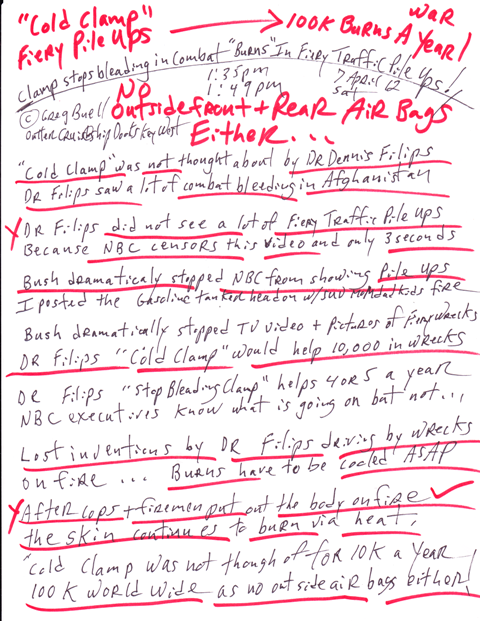 "Cold Clamp" → 100K Burns A Year! WAR
Fiery Pile Ups
Clamp stops bleeding in Combat "Burns" In Fiery Traffic Pile Ups!
1:35pm
1:49pm
7 April 12
Sat
© Greg Buell
NO
Outside front + Rear Air Bags
Either...
"Cold Clamp" was not thought about by DR Dennis Filips
DR Filips saw a lot of combat bleeding in Afghanistan
X DR Filips did not see a lot of Fiery Traffic Pile ups
Because NBC censors this video and only 3 seconds
Bush dramaticaly stopped NBC from showing pile ups
I posted the Gasoline tanker head on w/SUV Mom dad kids fire
Bush dramatically stopped TV video + Pictures of Fiery Wrecks
DR Filips "Cold Clamp" would help 10,000 in wrecks
DR Filips "Stop Bleeding Clamp" helps 4 or 5 a year
NBC executives know what is going on but not...,
Lost inventions by DR Filips driving by wrecks
on fire ... Burns have to be cooled ASAP
X After cops + firemen put out the body on fire ✓
the skin continues to burn via heat,
"Cold Clamp was not though of for 10K a year
100K world wide as no outside air bags either!